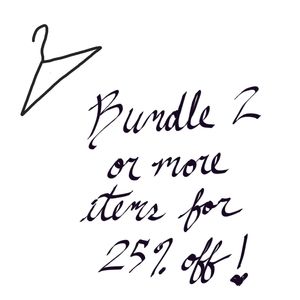 Bundle 2
or more
items for
25% off!